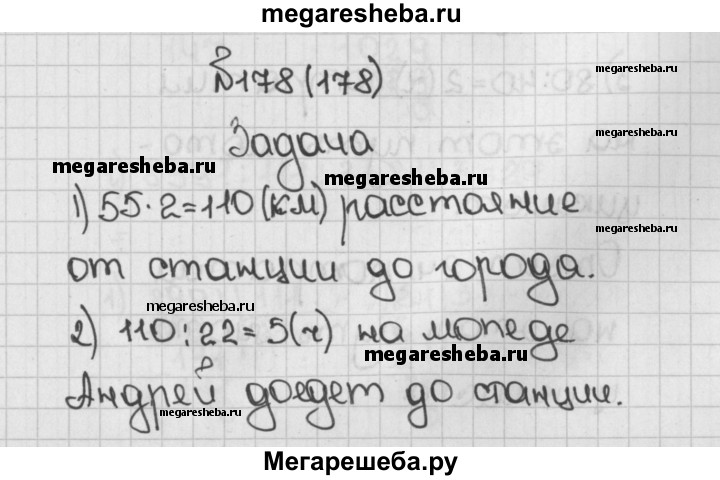 megaresheba.ru
№178 (178)
megaresheba.ru
Задача
megaresheba.ru
megaresheba.ru
1) 55·2=110 (км) расстояние
megaresheba.ru
от станции до города.
megaresheba.ru
2) 110:22=5(ч) на мопеде
megaresheba.ru
megaresheba.ru
Андрей доедет до станции.
megaresheba.ru
megaresheba.ru
Мегарешеба.ру